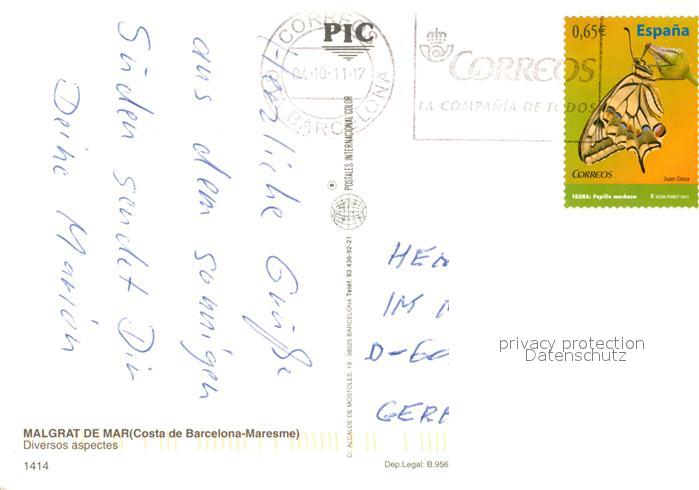 Herzliche Grüße
aus dem sonnigen
Süden sendet Dir
Deine Marion
CORREOS
04-10-11-17
BARCELONA
PIC
CORREOS
LA COMPAÑÍA DE TODOS
0,65€ España
CORREOS
Juan Daza
FAUNA: Papilio machaon
RCM-FNMT 2011
POSTALES INTERNACIONAL COLOR
C/. ALCALDE DE MOSTOLES, 19 - 08025 BARCELONA Teléf. 93 436-92-21
HE
IM
D-
GER
privacy protection
Datenschutz
MALGRAT DE MAR(Costa de Barcelona-Maresme)
Diversos aspectes
1414
Dep.Legal: B.956